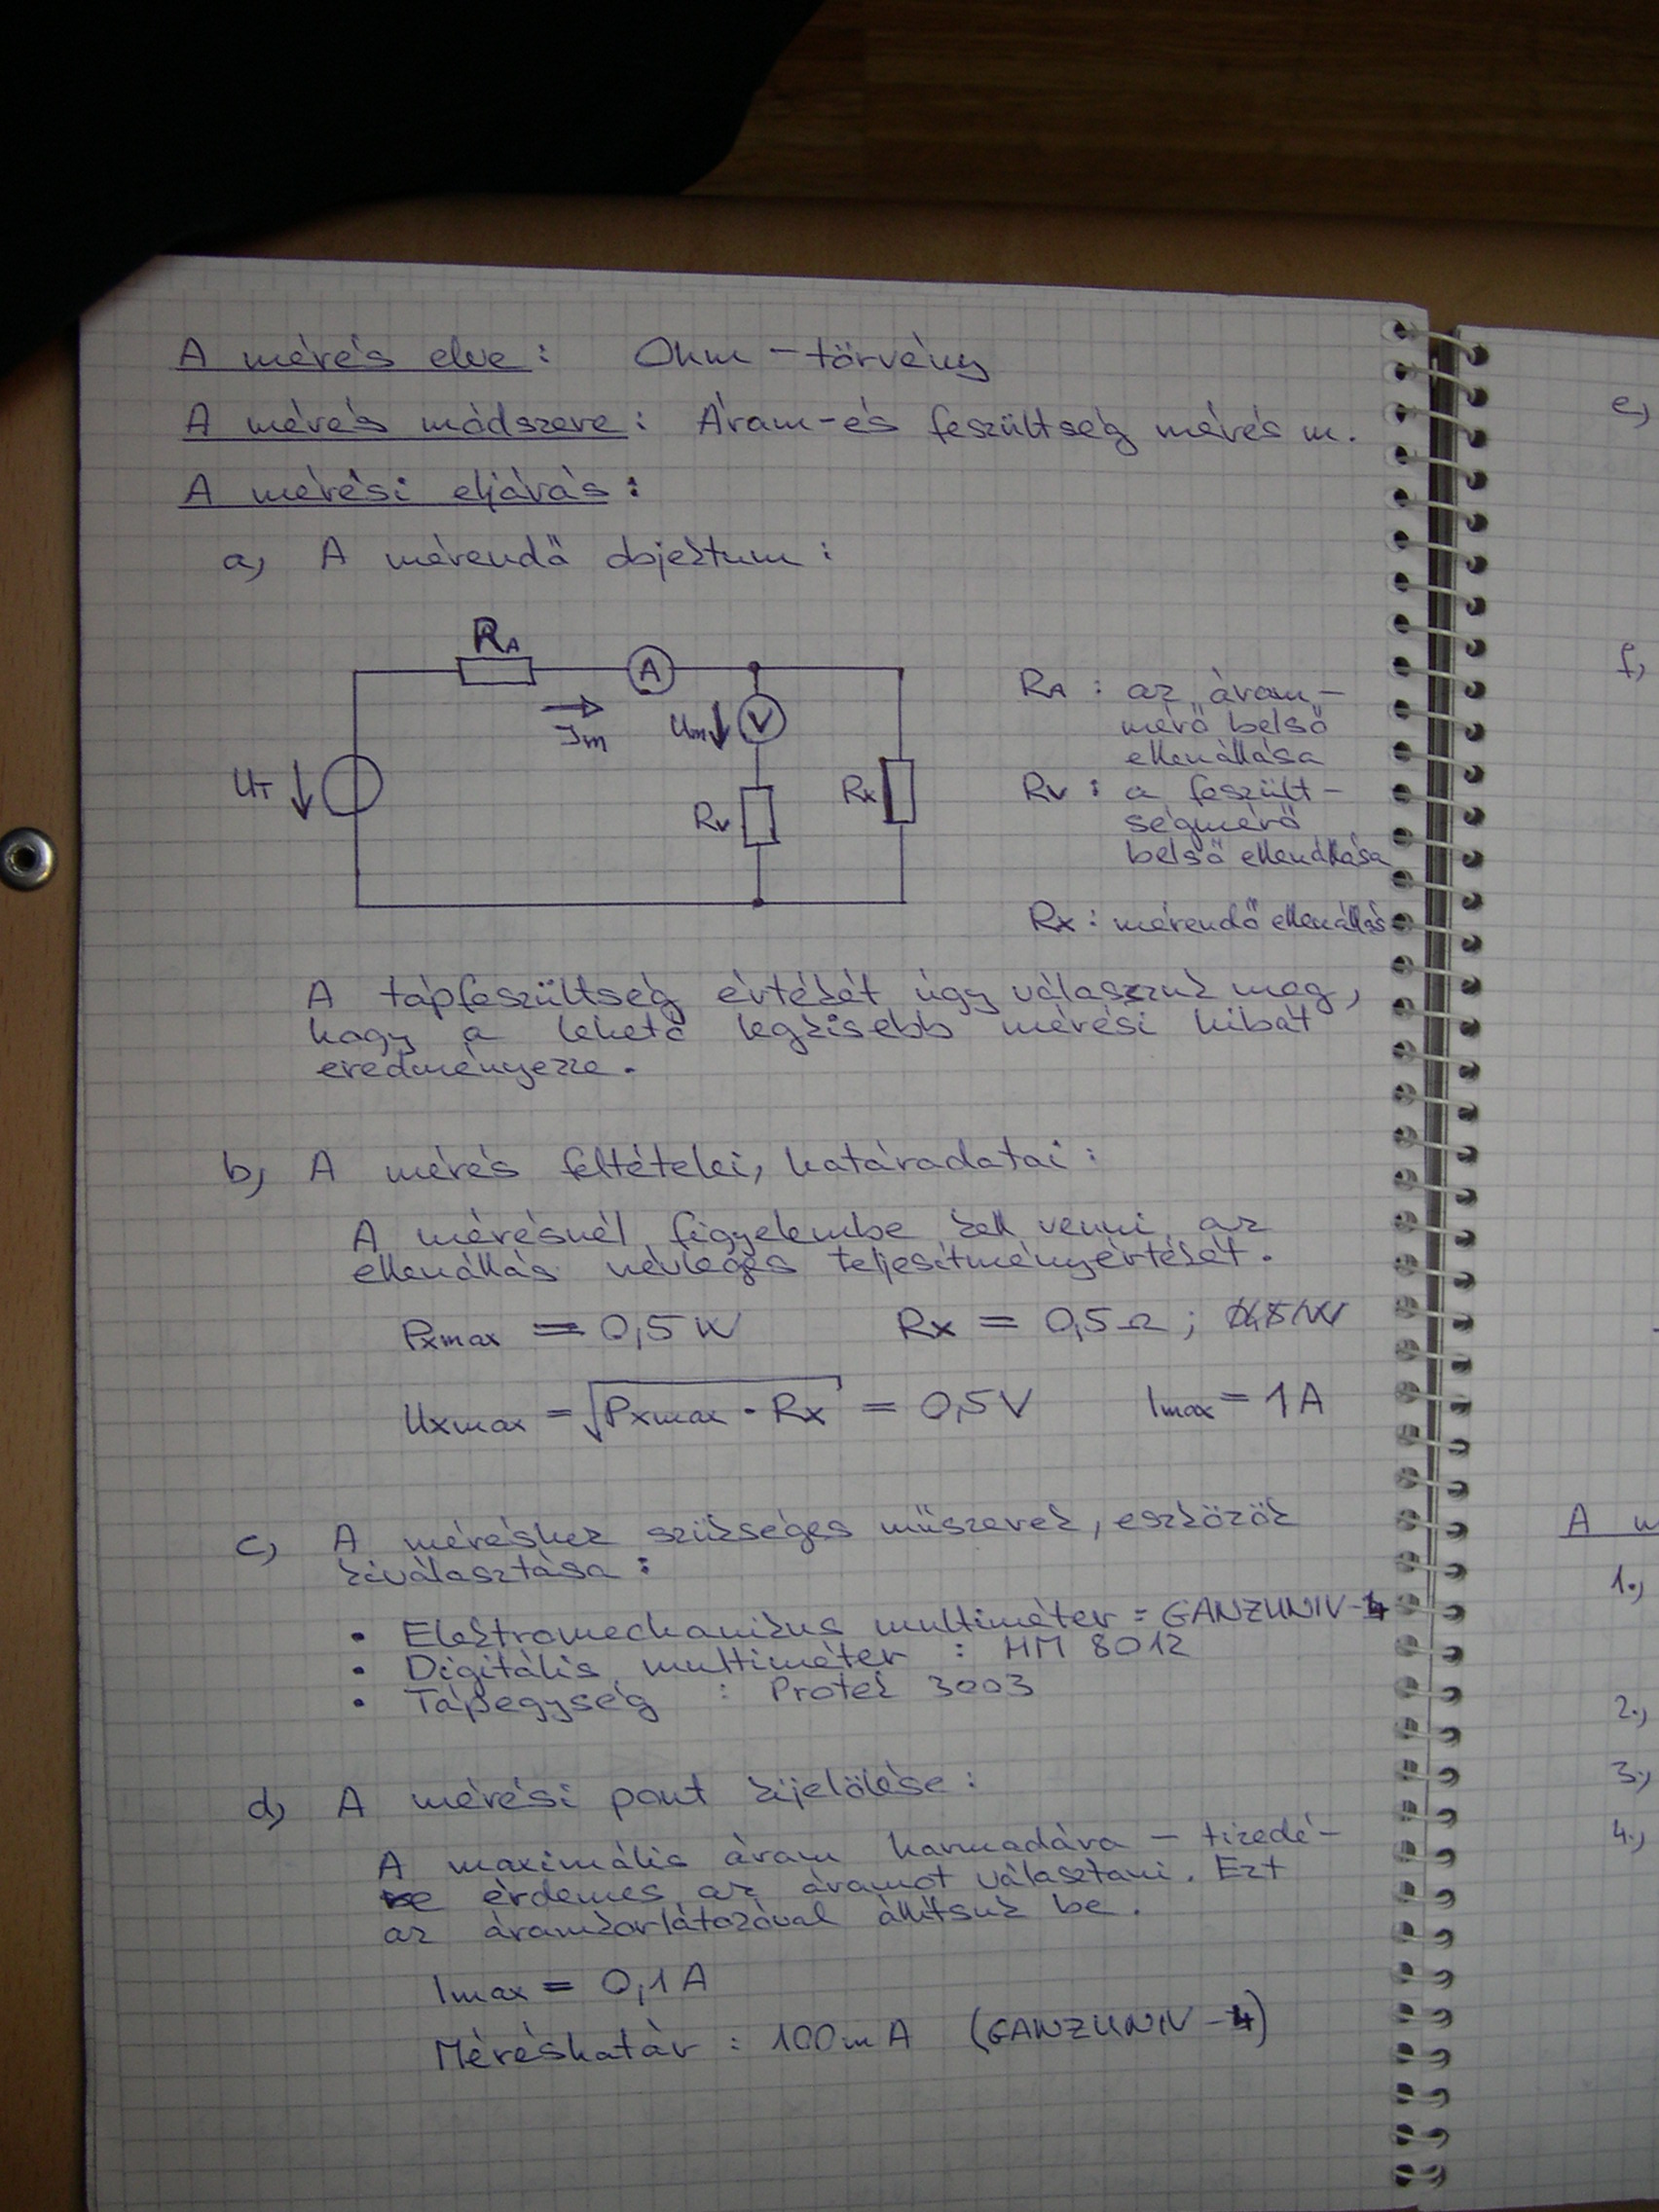 A mérés elve: Ohm-törvény
A mérés módszere: Áram-és feszültség mérés m.
A mérési eljárás:
a, A mérendő objektum:
RA
A
Im
Um
V
UT
Rv
Rx
RA: az áram-
mérő belső
ellenállása
Rv: a feszült-
ségmérő
belső ellenállása
Rx: mérendő ellenállás
A tápfeszültség értékét úgy válasszuk meg,
hogy a lehető legkisebb mérési hibát
eredményezze.
b, A mérés feltételei, határadatai:
A mérésnél figyelembe kell venni az
ellenállás névleges teljesítményértékét.
Pxmax = 0,5W Rx = 0,5Ω;
Uxmax = √Pxmax · Rx = 0,5V Imax = 1A
c, A méréshez szükséges műszerek, eszközök
kiválasztása:
• Elektromechanikus multiméter = GANZUNIV-4
• Digitális multiméter : HM 8012
• Tápegység : Protek 3003
d, A mérési pont kijelölése:
A maximális áram harmadára - tizedé-
re érdemes az áramot választani. Ezt
az áramkorlátozóval állítsuk be.
Imax = 0,1A
Méréshatár : 100mA (GANZUNIV-4)
e,
f,
A m
1.,
2.,
3.,
4.,